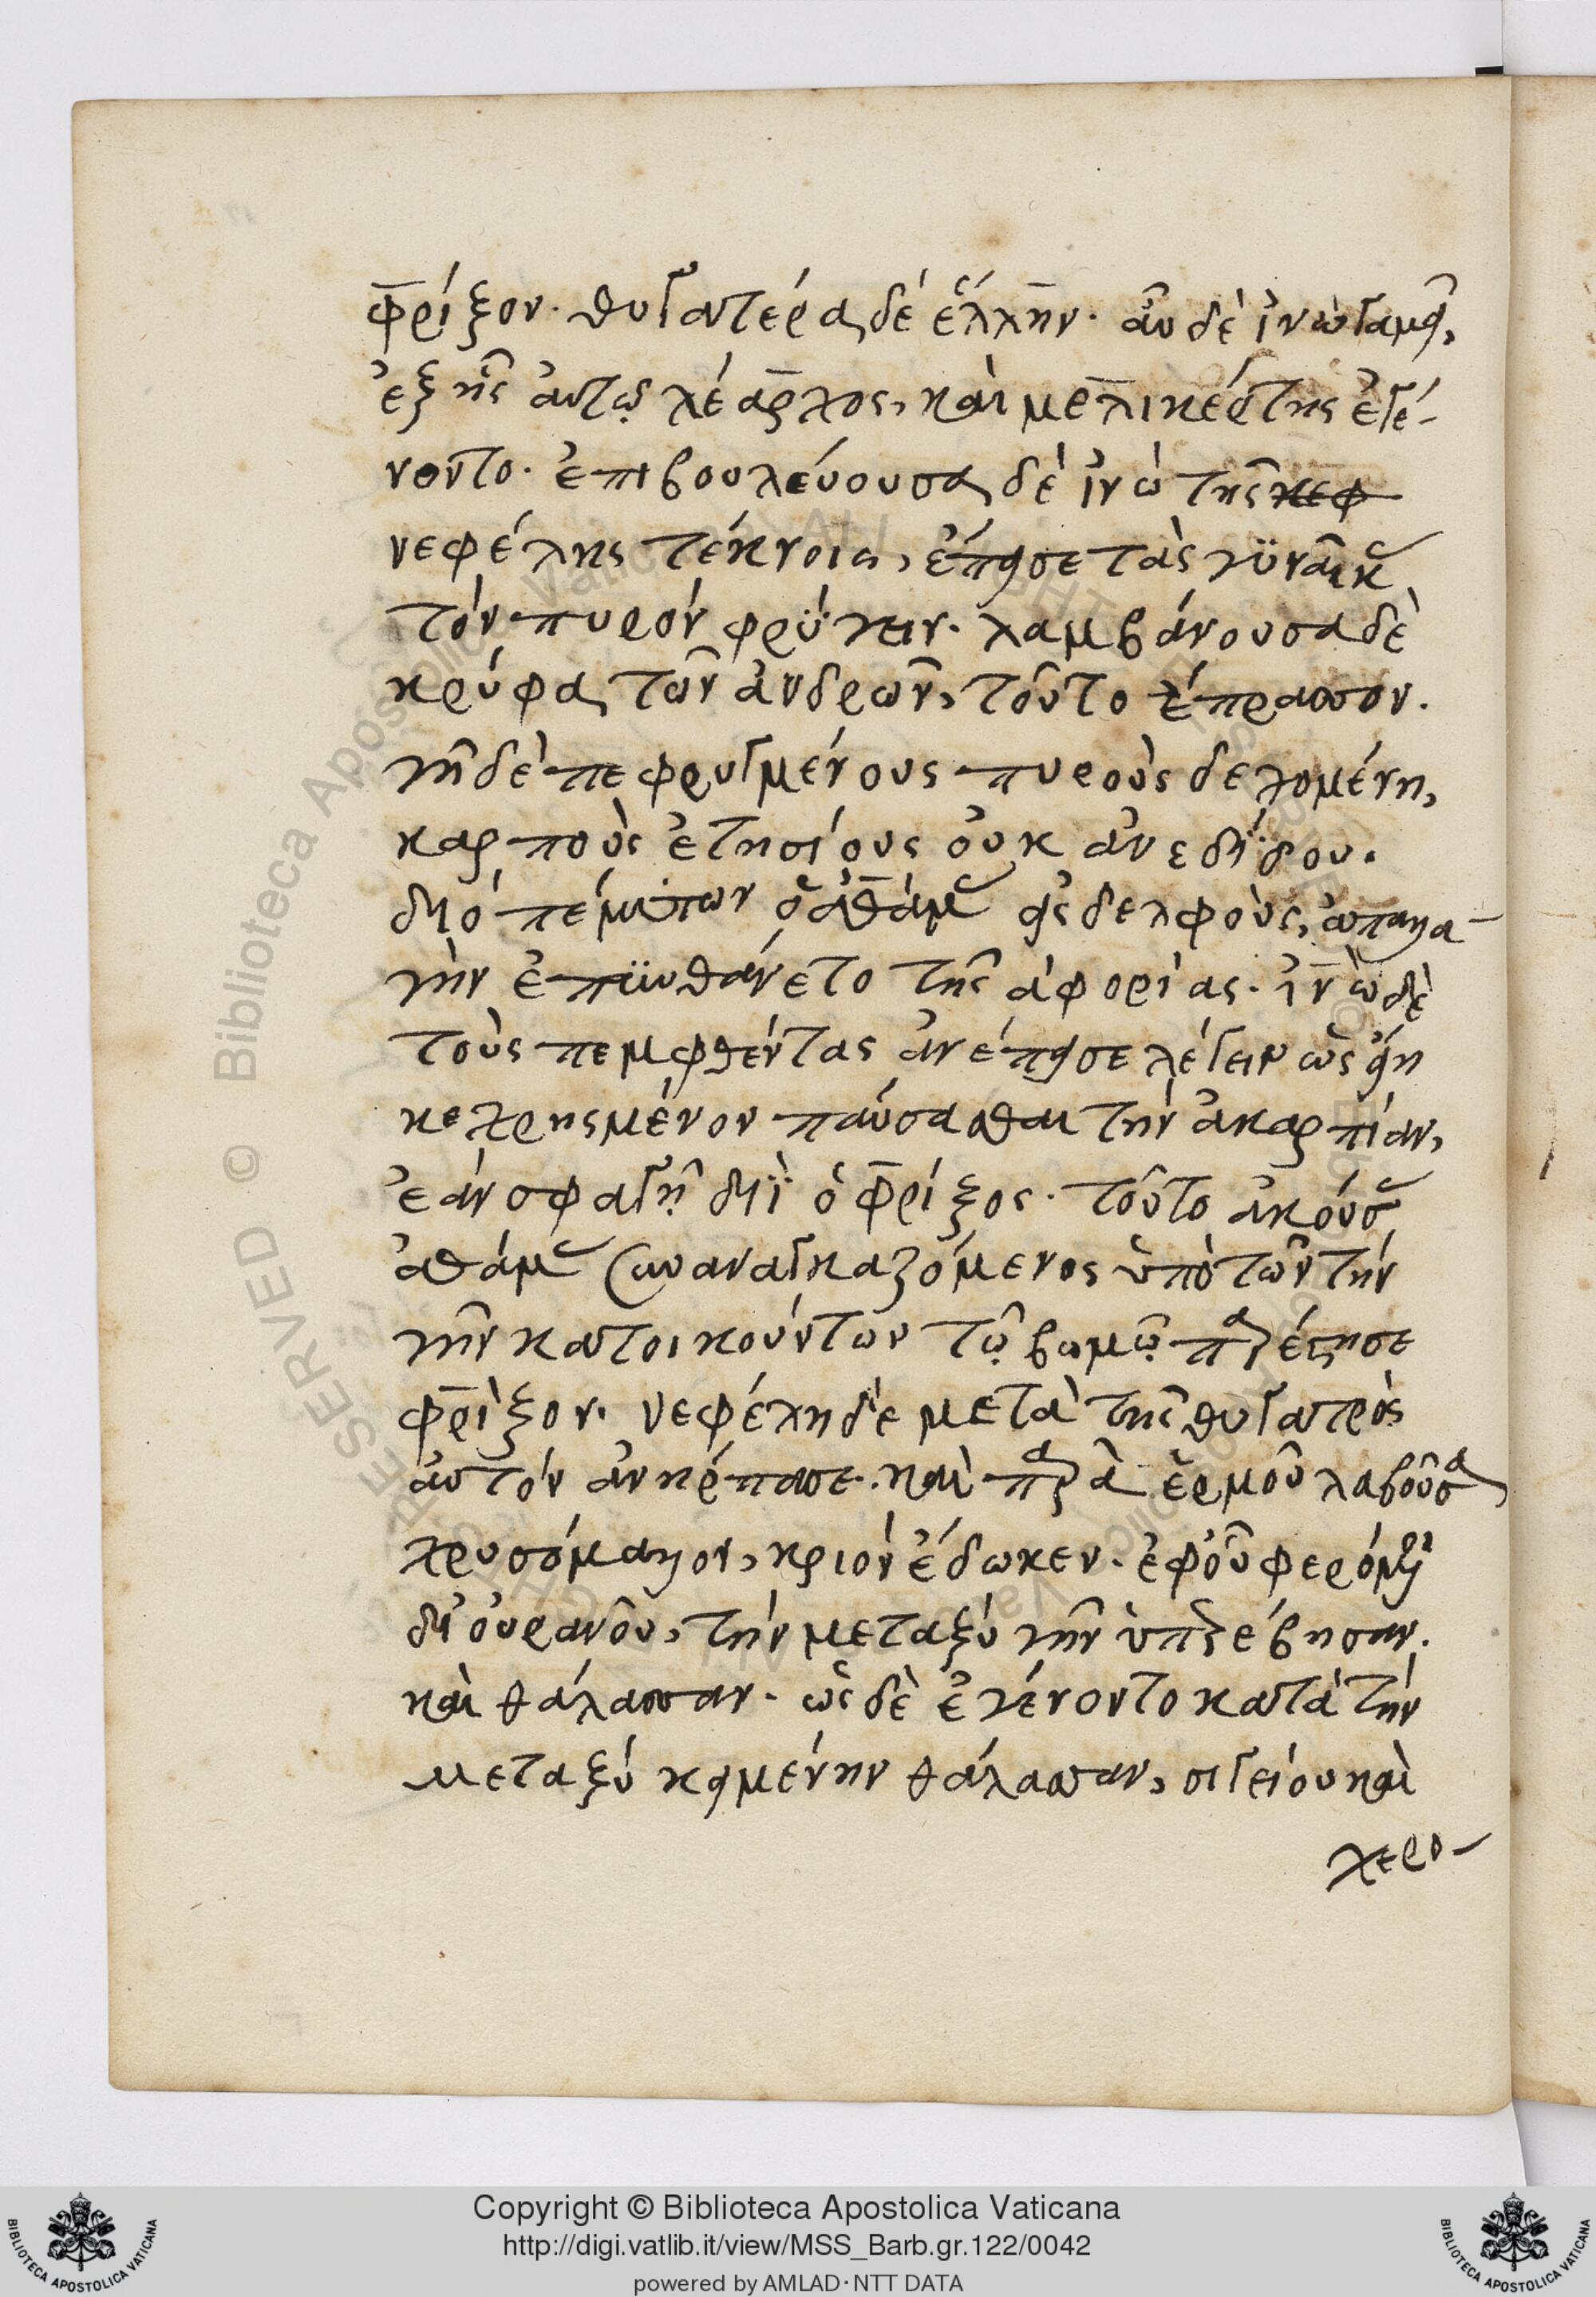 φρίξον. θυγατέρα δὲ ἕλλην. αὖ δὲ ἰνὼ γαμεῖ,
ἐξ ἧς αὐτῷ λέαρχος, καὶ μελικέρτης ἐγέ-
νοντο. ἐπιβουλεύουσα δὲ ἰνὼ τῆς κεφ
νεφέλης τέκνοις, ἔπεισε τὰς γϋναῖκας
τὸν πυρὸν φρύγειν. λαμβάνουσα δὲ
κρύφα τῶν ἀνδρῶν, τοῦτο ἔπρασσον.
γῆ δὲ πεφρυγμένους πυροὺς δεχομένη,
καρποὺς ἐτησίους οὐκ ἀνεδίδου.
διὸ πέμπων ὁ ἀθάμας εἰς δελφοὺς, ἀπαλλα-
γὴν ἐπϋνθάνετο τῆς ἀφορίας. ἰνὼ δὲ
τοὺς πεμφθέντας ἀνέπεισε λέγειν ὡς εἴη
κεχρησμένον παύσασθαι τὴν ἀκαρπίαν,
ἐὰν σφαγῇ διῒ ὁ φρίξος. τοῦτο ἀκούσας
ἀθάμας συναναγκαζόμενος ὑπὸ τῶν τὴν
γῆν κατοικούντων τῷ βωμῷ παρέστησε
φρίξον. νεφέλη δὲ μετὰ τῆς θυγατρὸς
αὐτὸν ἀνήρπασε. καὶ παρὰ ἑρμοῦ λαβοῦσα
χρυσόμαλλον, κριὸν ἔδωκεν. ἐφ οὗ φερόμενοι
δι οὐρανοῦ, τὴν μεταξὺ γῆν ὑπερέβησαν.
καὶ θάλασσαν. ὡς δὲ ἐγένοντο κατὰ τὴν
μεταξὺ κειμένην θάλασσαν, σιγείου καὶ
χερο-
Copyright © Biblioteca Apostolica Vaticana
http://digi.vatlib.it/view/MSS_Barb.gr.122/0042
powered by AMLAD·NTT DATA